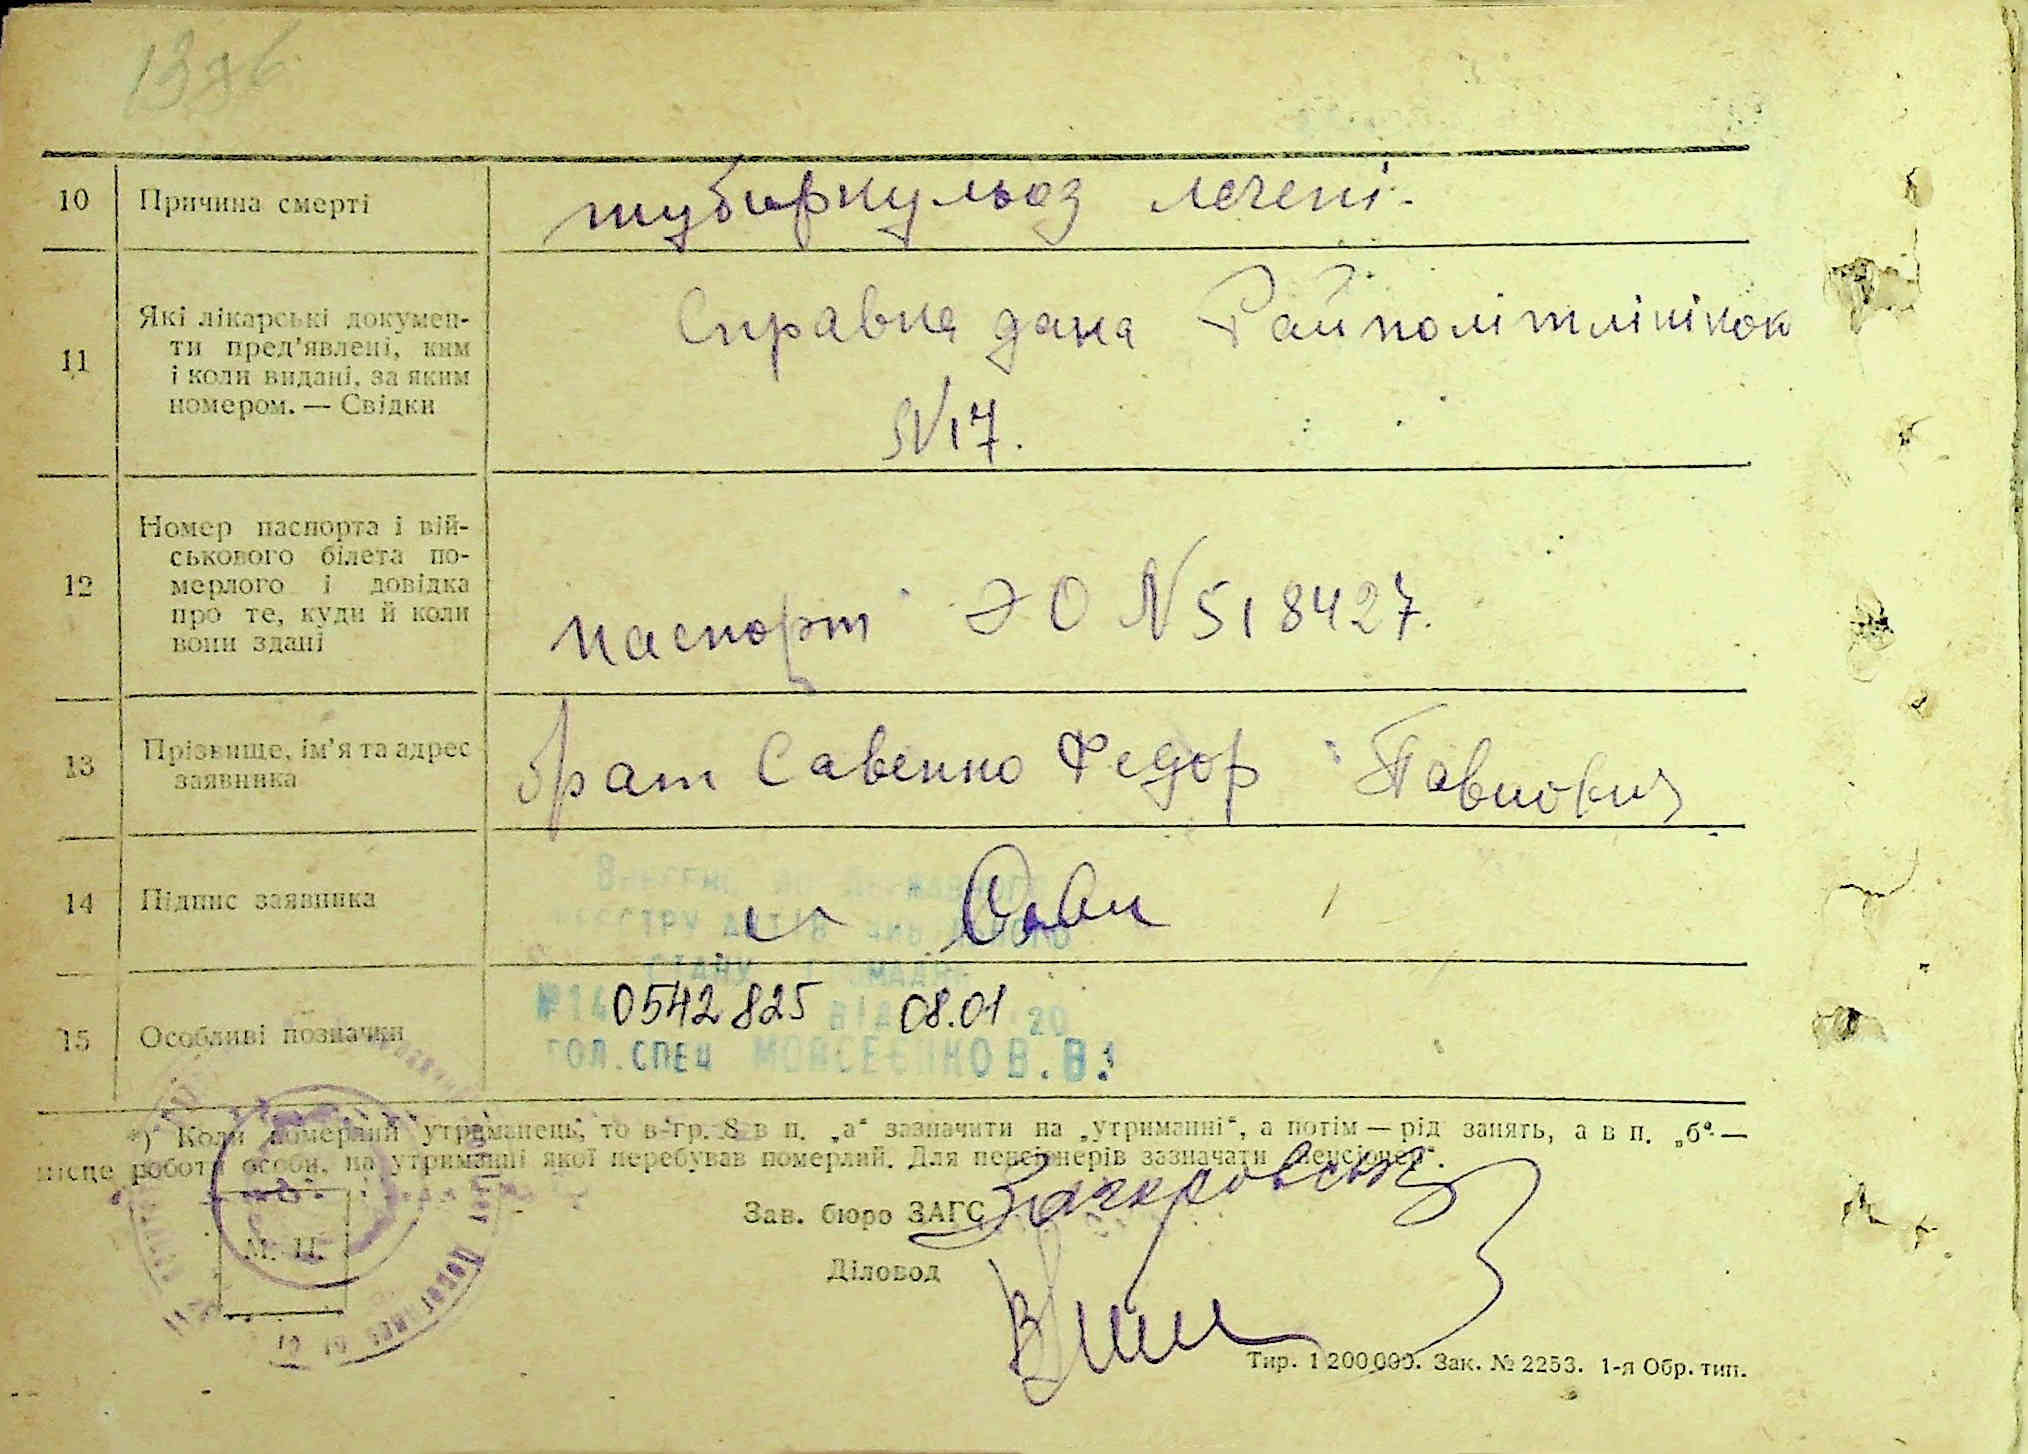 10 Причина смерті
туберкульоз легені.
11 Які лікарські докумен-
ти пред'явлені, ким
і коли видані, за яким
номером. — Свідки
Справка дана Райполітклінікок
N17.
12 Номер паспорта і вій-
ськового білета по-
мерлого і довідка
про те, куди й коли
вони здані
паспорт ЭО N 518427.
13 Прізвище, ім'я та адрес
заявника
брат Савенко Федор Павлович
14 Підпис заявника
Сави
15 Особливі позначки
№140542825 ВІД 08.01 20
ГОЛ.СПЕЦ МОЙСЕЄНКО В.В.
*) Коли померлий утриманець, то в гр. 8 в п. „а“ зазначити на „утриманні“, а потім — рід занять, а в п. „б“—
місце роботи особи, на утриманні якої перебував померлий. Для пенсіонерів зазначати „пенсіонер“.
Зав. бюро ЗАГС
Діловод
М. П.
Тир. 1 200 000. Зак. № 2253. 1-я Обр. тип.